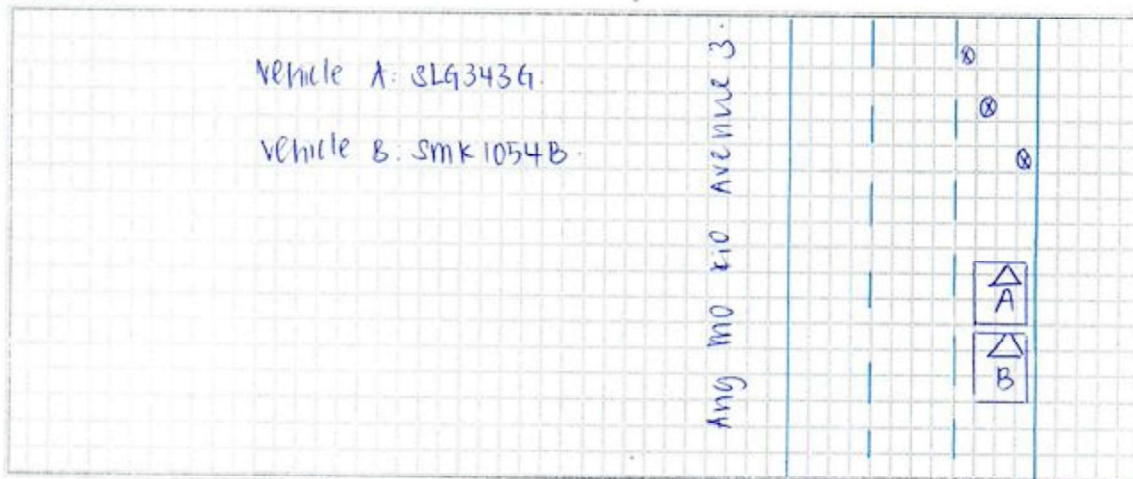 Vehicle A: SLG343G.
Vehicle B: SMK1054B.
Ang mo kio Avenue 3.
A
B